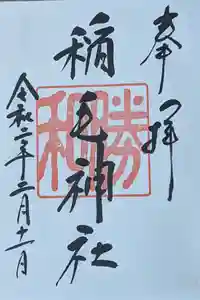 奉拝
稲毛神社
勝和
令和二年二月十一日